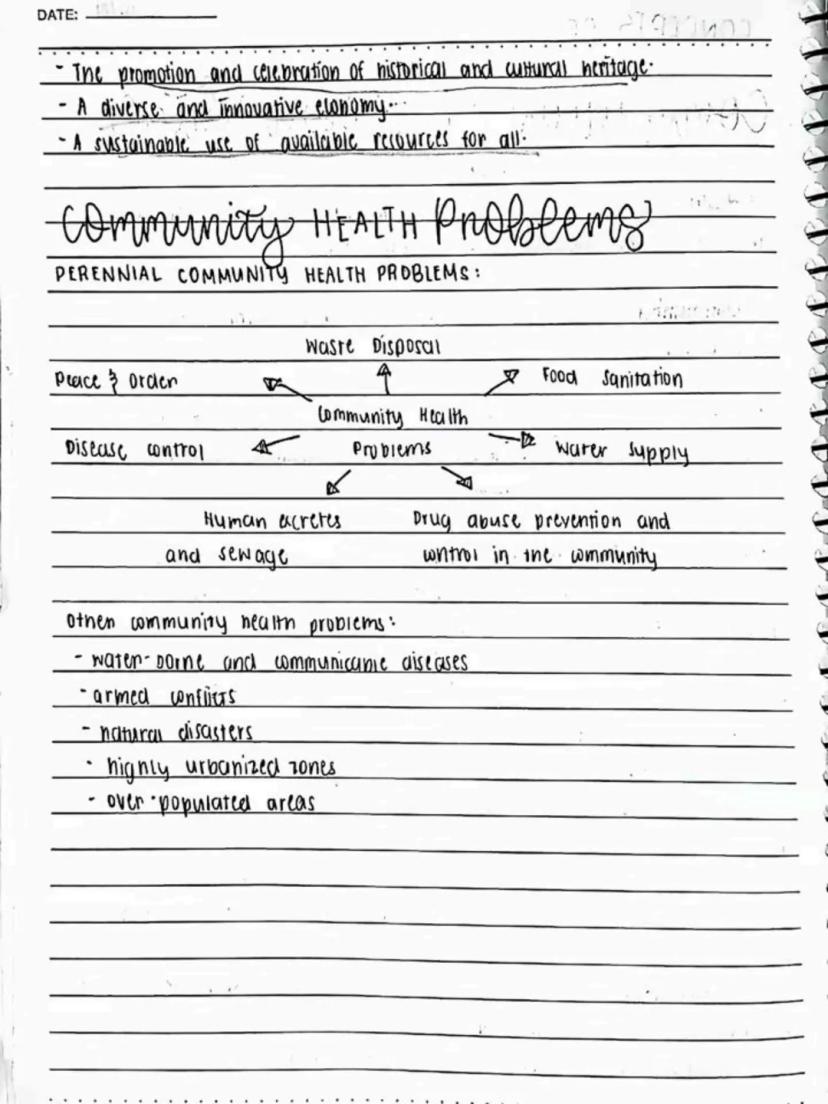 DATE:
- The promotion and celebration of historical and cultural heritage.
- A diverse and innovative economy.
- A sustainable use of available resources for all.
Community HEALTH Problems
PERENNIAL COMMUNITY HEALTH PROBLEMS:
Waste Disposal
Peace & Order
Food Sanitation
Community Health
Problems
Disease control
Water Supply
Human excretes
and sewage
Drug abuse prevention and
control in the community
Other community health problems:
- water-borne and communicable diseases
- armed conflicts
- natural disasters
- highly urbanized zones
- over-populated areas